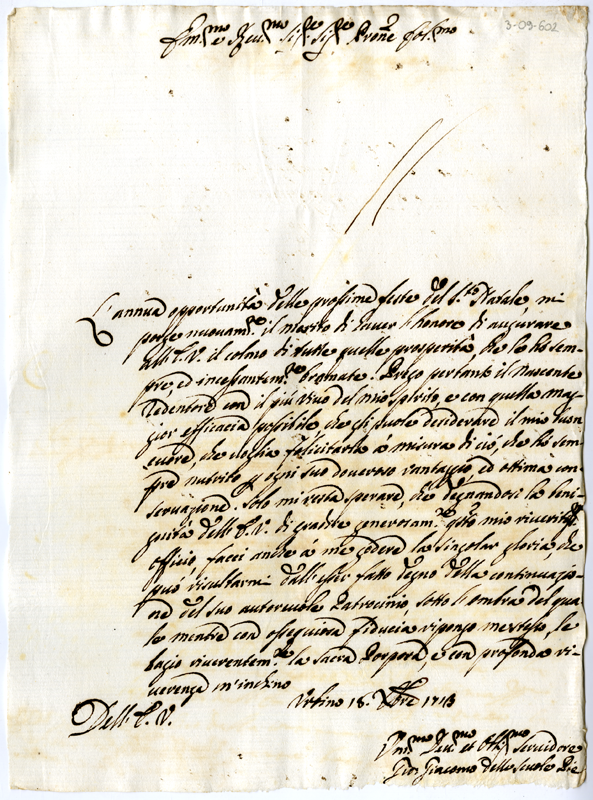 3-09-602
Em.mo e Rev.mo Sig.re Sig.re Prone Col.mo
L'annua opportunità delle prossime feste del S.to Natale, mi
porge nuovam.te il merito di haver l'honore di augurare
all'E.V. il colmo di tutte quelle prosperità, che le hò sem-
pre, ed incessantem.te bramate. Prego pertanto il Nascente
Redentore con il più vivo del mio spirito, e con quella mag-
gior efficacia possibile che gli puole desiderare il mio buon
cuore, che voglia felicitarla à misura di ciò, che hò sem
pre nutrito p ogni suo doveroso vantaggio, ed ottima con-
servazione. Solo mi resta sperare, che degnandosi la beni-
gnità dell'E.V. di gradire generosam.te q.sto mio riverite
officio, facci anche à me godere la singolar gloria, che
può risultarmi dall'esser fatto degno della continuazio-
ne del suo autorevole Patrocinio, sotto l'ombra del qua-
le mentre con ossequiosa fiducia ripongo me stesso, le
bagio riverentem.te la sacra Porpora, e con profonda ri-
verenza m'inchino
Urbino 18. Xbre 1713
Dell'E.V.
Um.mo Dev.mo et Obl.mo Servidore
Gio: Giacomo delle Scuole Pie